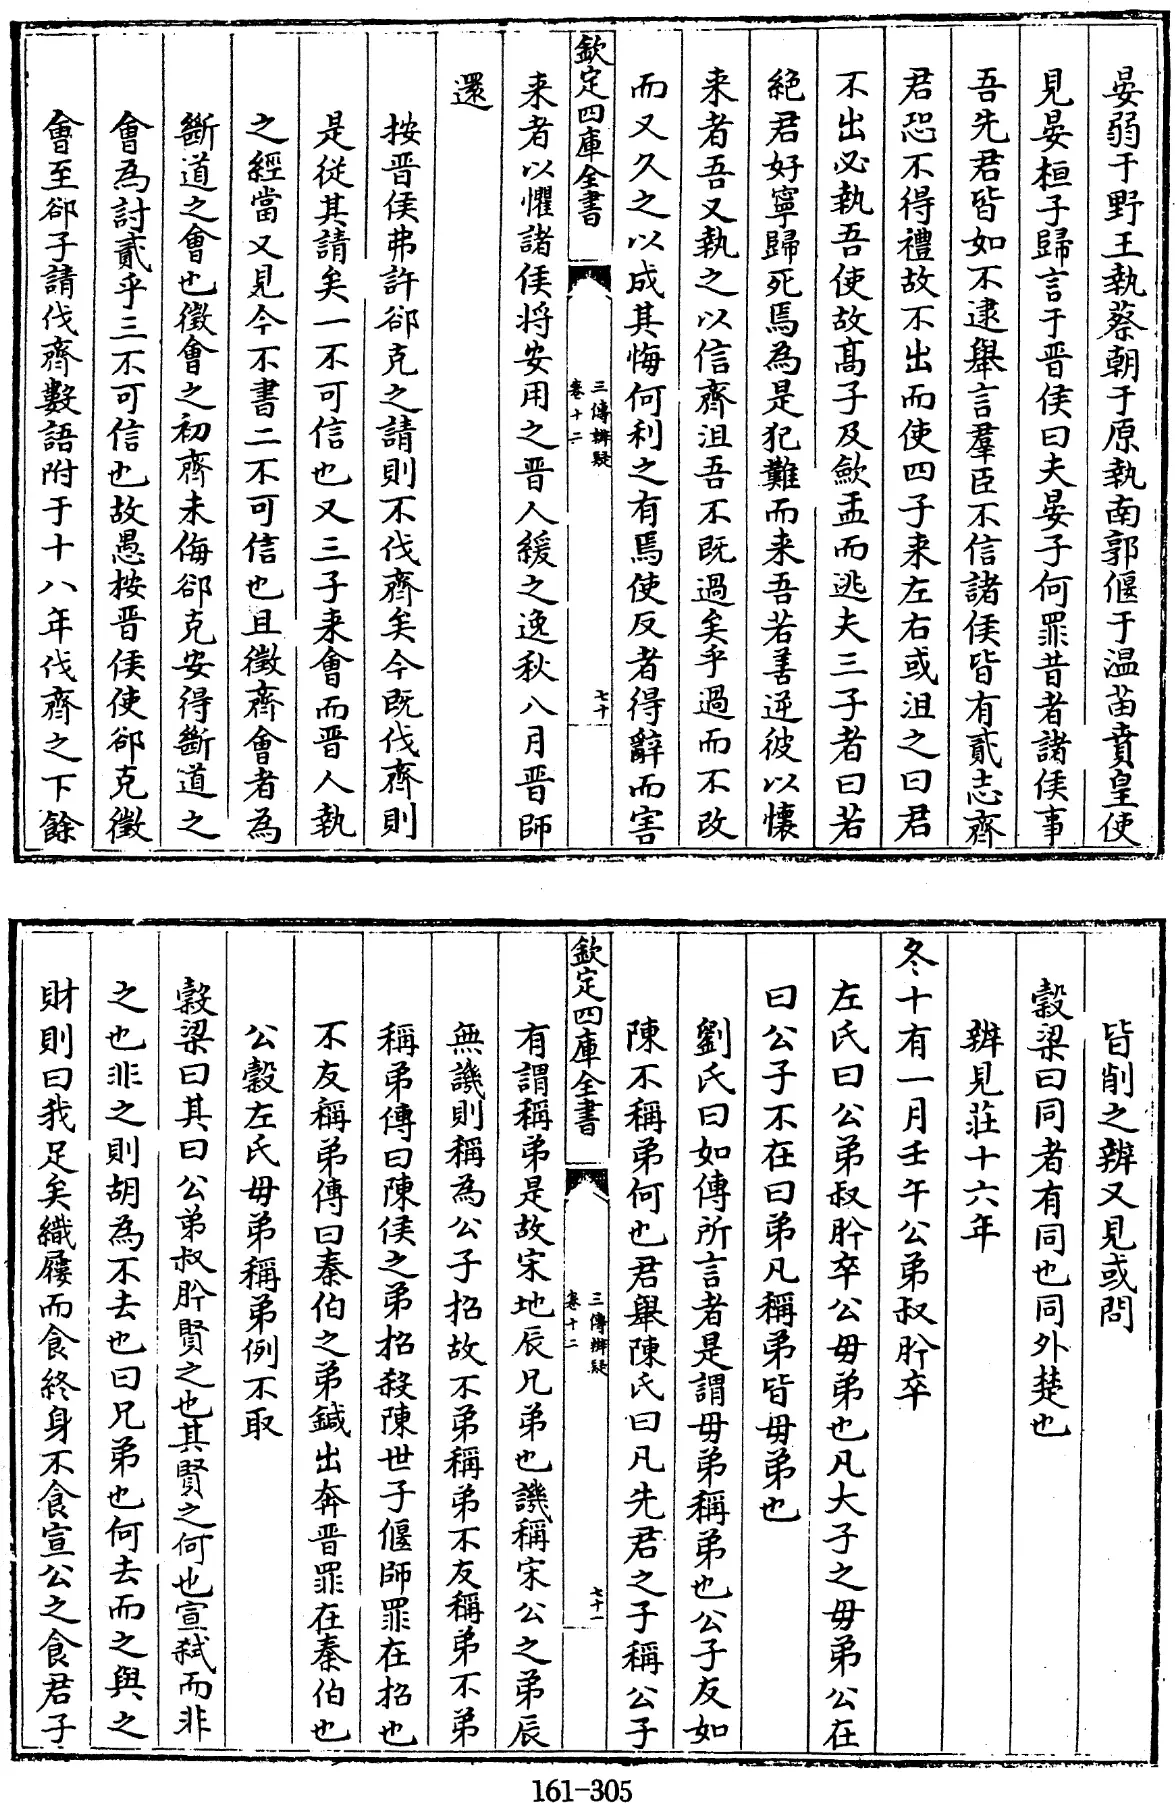 晏弱于野王執蔡朝于原執南郭偃于温苗賁皇使
見晏桓子歸言于晉侯曰夫晏子何罪昔者諸侯事
吾先君皆如不逮舉言羣臣不信諸侯皆有貳志齊
君恐不得禮故不出而使四子来左右或沮之曰君
不出必執吾使故髙子及歛盂而逃夫三子者曰若
絶君好寧歸死焉為是犯難而来吾若善逆彼以懐
来者吾又執之以信齊沮吾不既過矣乎過而不改
而又久之以成其悔何利之有焉使反者得辭而害
欽定四庫全書
三傳辨疑
卷十二
七十
来者以懼諸侯将安用之晉人緩之逸秋八月晉師
還
按晉侯弗許郤克之請則不伐齊矣今既伐齊則
是從其請矣一不可信也又三子来會而晉人執
之經當又見今不書二不可信也且徵齊會者為
斷道之會也徵會之初齊未侮郤克安得斷道之
會為討貳乎三不可信也故愚按晉侯使郤克徵
會至郤子請伐齊數語附于十八年伐齊之下餘
皆削之辨又見或問
穀梁曰同者有同也同外楚也
辨見莊十六年
冬十有一月壬午公弟叔肸卒
左氏曰公弟叔肸卒公母弟也凡大子之母弟公在
曰公子不在曰弟凡稱弟皆母弟也
劉氏曰如傳所言者是謂母弟稱弟也公子友如
陳不稱弟何也君舉陳氏曰凡先君之子稱公子
欽定四庫全書
三傳辨疑
卷十二
七十一
有謂稱弟是故宋地辰兄弟也譏稱宋公之弟辰
無譏則稱為公子招故不弟稱弟不友稱弟不弟
稱弟傳曰陳侯之弟招殺陳世子偃師罪在招也
不友稱弟傳曰秦伯之弟鍼出奔晉罪在秦伯也
公穀左氏母弟稱弟例不取
穀梁曰其曰公弟叔肸賢之也其賢之何也宣弑而非
之也非之則胡為不去也曰兄弟也何去而之與之
財則曰我足矣織屨而食終身不食宣公之食君子
161-305